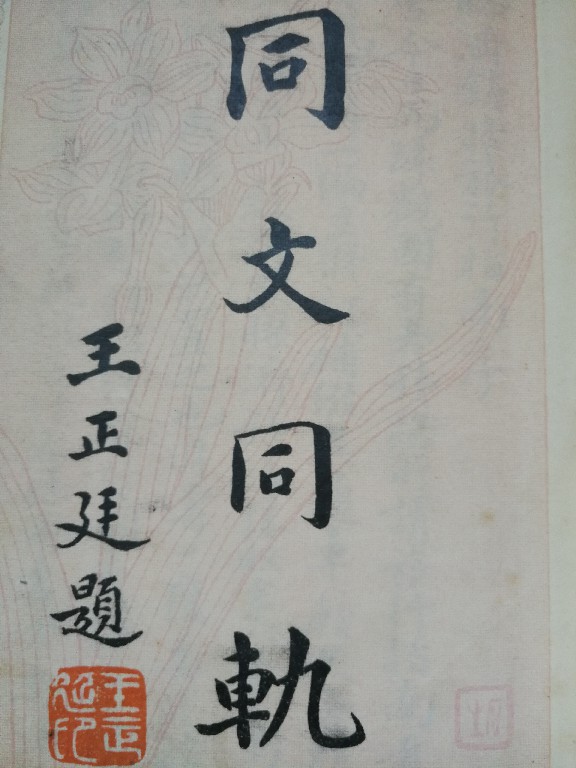 同文同軌
王正廷題
王正廷印